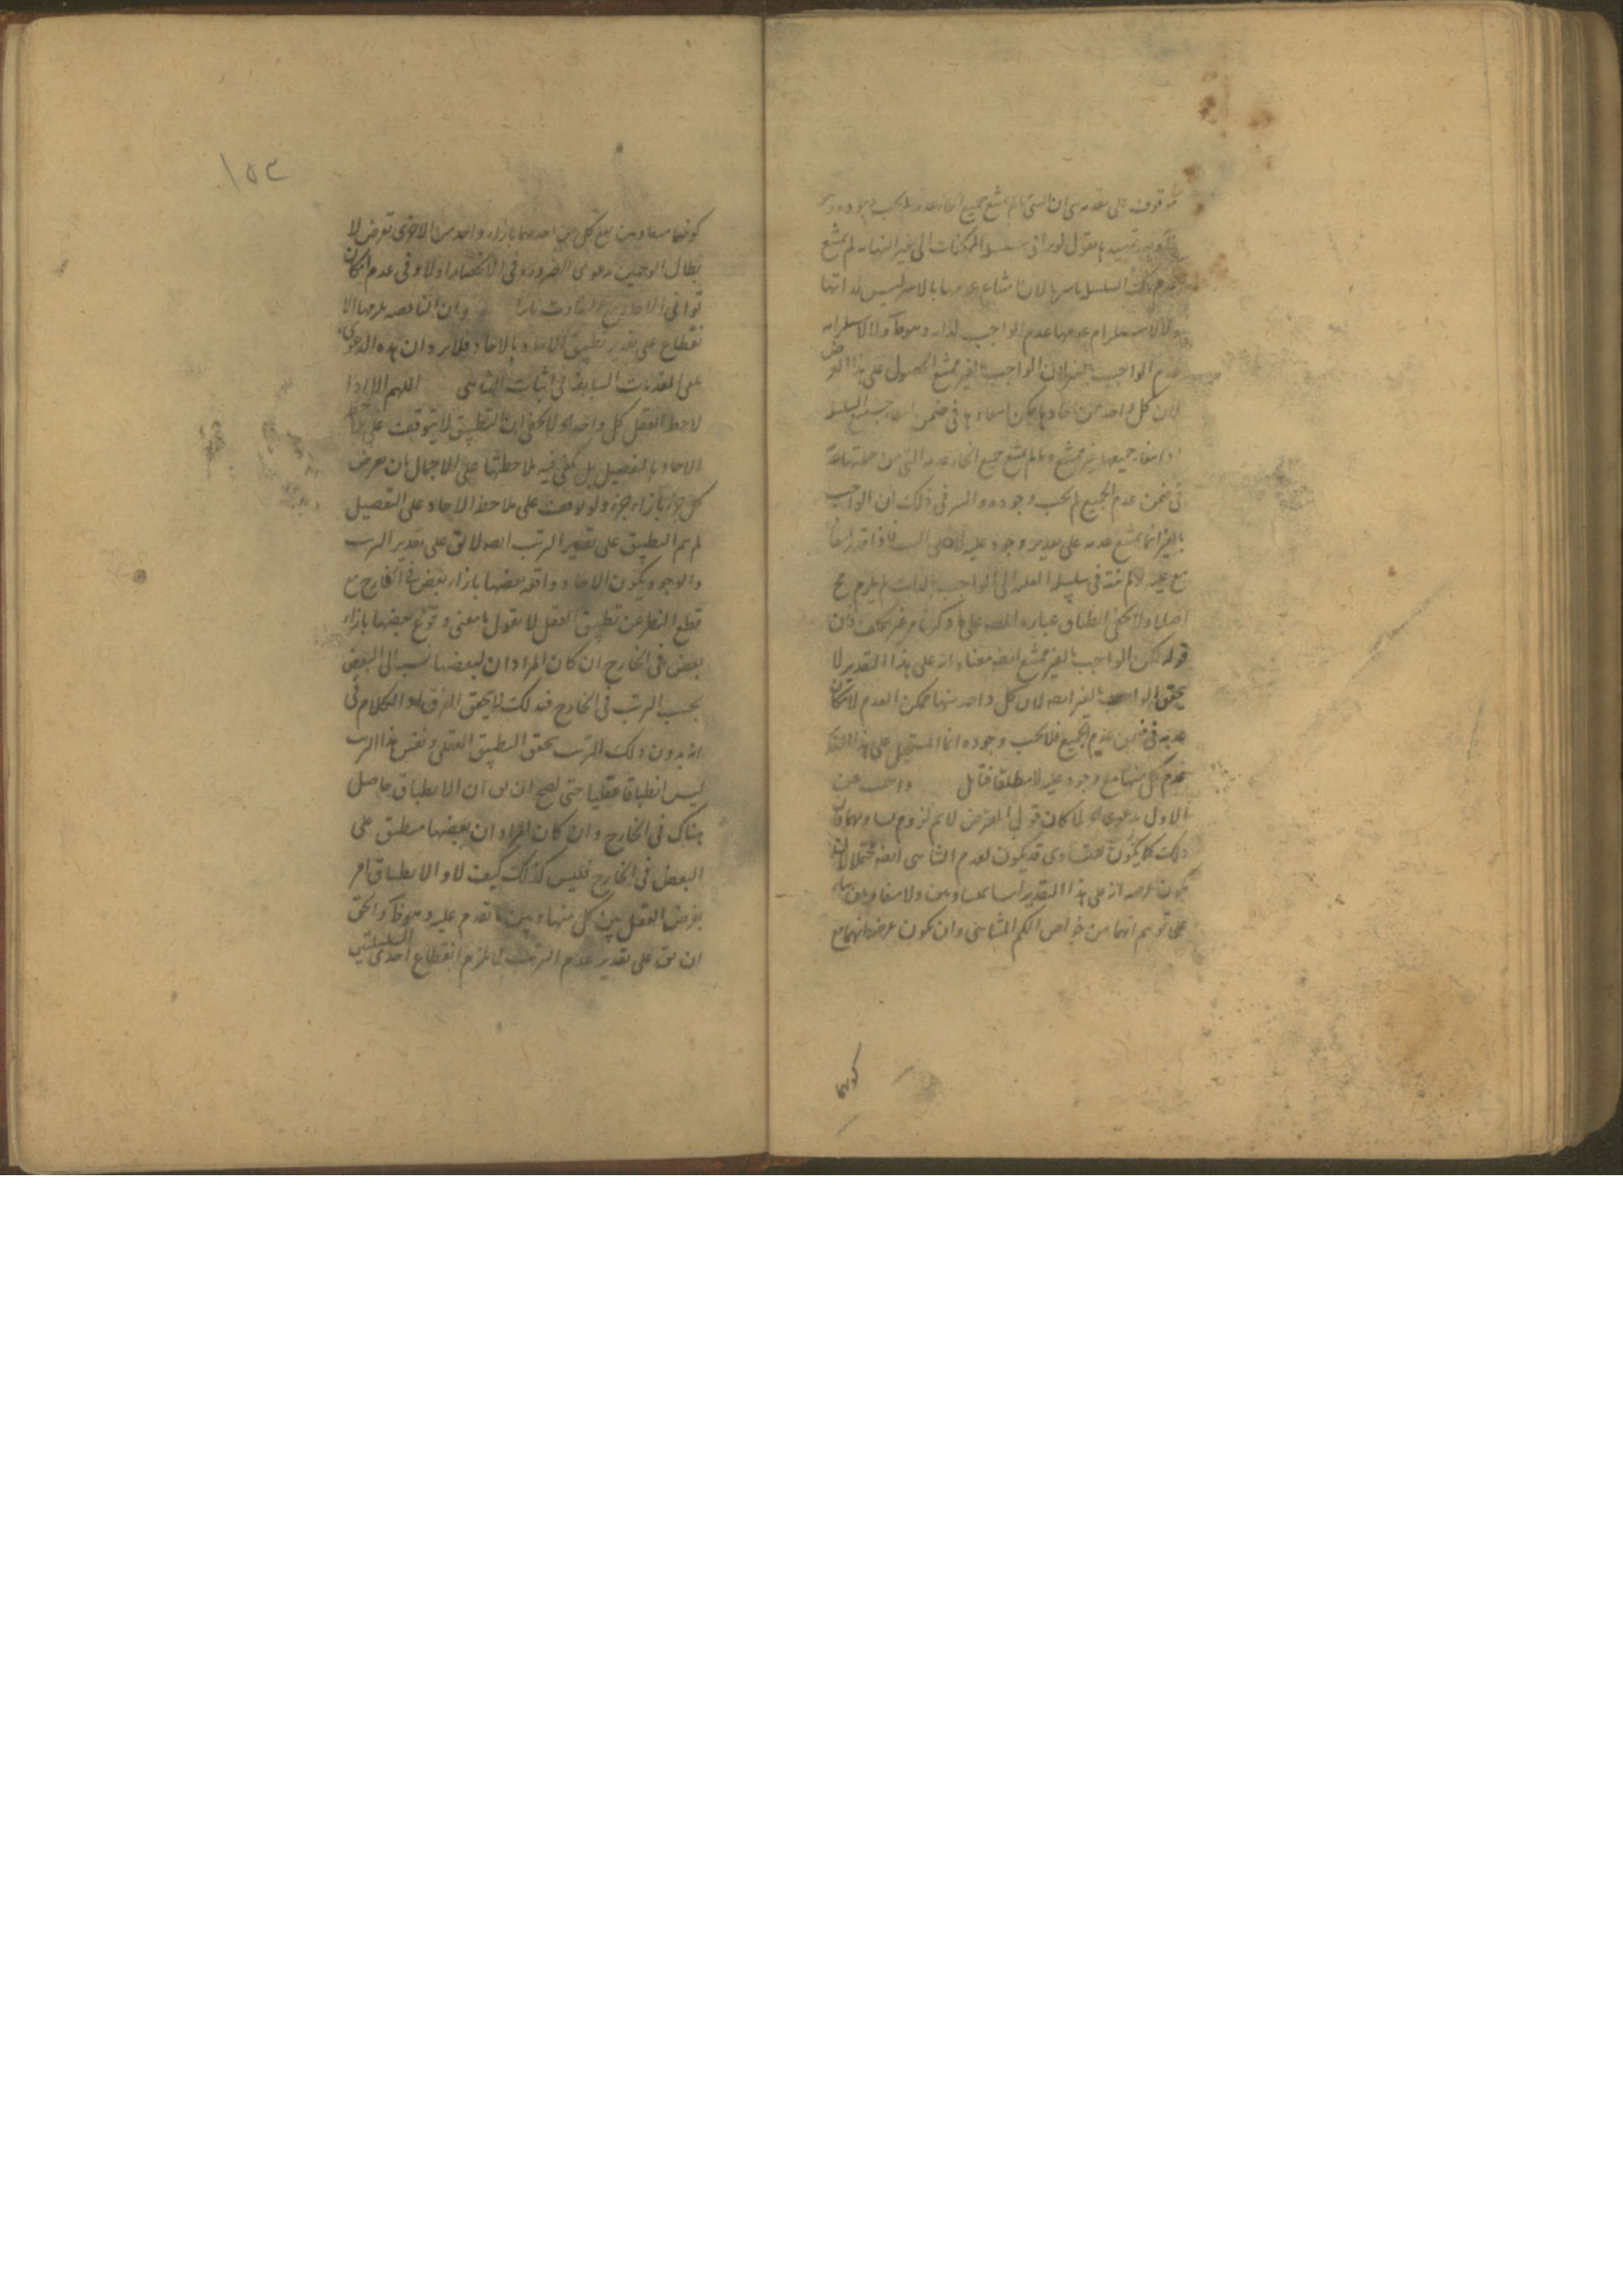 موقوف على مقدمة هى ان الشى ما لم يمتنع جميع انحاء عدمه لم يجب وجوده
تمهيد ما نقول لو ترتب سلسلة الممكنات الى غير النهاية لم يمتنع
عدم تلك السلسلة باسرها لان امتناع عدمها بالاسر ليس لذاتها
ولا لاستلزام عدمها عدم الواجب لذاته وهو ظ ولا لاستلزامه
عدم الواجب بالغير لان الواجب بالغير ممتنع الحصول على هذا الفرض
لان كل واحد من احادها يمكن انتفاءه فى ضمن انتفاء جميع السلسلة
اذ انتفاء جميعها غير ممتنع وما لم يمتنع جميع انحاء عدمه التى من جملتها عدمه
فى ضمن عدم الجميع لم يجب وجوده والسر فى ذلك ان الواجب
بالغير انما يمتنع عدمه على تقدير وجود علته
مع علته لم ينته فى سلسلة العلة الى الواجب بالذات لم يلزم مح
اصلا ولا يخفى انطباق عبارة المصه على ما ذكرنا من غير تكلف فان
قوله لكن الواجب بالغير ممتنع ايضه معناه انه على هذا التقدير لا
يحقق الواجب بالغير ايضه لان كل واحد منها ممكن العدم لامكان
عدمه فى ضمن عدم الجميع فلا يجب وجوده انما المستحيل على هذا التقدير
عدم كل منها مع وجود علته لا مطلقا فتامل واجيب عن
الاول بدعوى لما كان قول المعترض لا نم لزوم تساويهما فان
ذلك كما يكون للتساوى قد يكون لعدم التناهى ايضه محتملا لان
يكون غرضه انه على هذا التقدير ليسا بمتساويين ولا متفاوتين بناء
على توهم انهما من خواص الكم المتناهى وان يكون غرضه انهما مع
كونهما
١٥٣
كونهما متفاوتين يقع كل من احديهما بازاء واحد من الاخرى تعرض لا
بطال الوجهين بدعوى الضرورة فى الانحصار اولا وفى عدم امكان
توافى الاحاد مع التفاوت ثانيا وان الناقصة يلزمها الا
نقطاع على تقدير تطبيق الاحاد بالاحاد فلا يرد ان هذه الدعوى
على المقدمات السابقة فى اثبات التناهى اللهم الا اذا
لاحظ العقل كل واحد اه لا يخفى ان التطبيق لا يتوقف على ملاحظة
الاحاد بالتفصيل بل يكفى فيه ملاحظتها على الاجمال بان يعرض
كل جزء بازاء جزء ولو توقف على ملاحظة الاحاد على التفصيل
لم يتم التطبيق على تقدير الترتب ايضه لا يق على تقدير الترتب
والوجود يكون الاحاد واقعة بعضها بازاء بعض فى الخارج مع
قطع النظر عن تطبيق العقل لا نقول ما معنى وقوع بعضها بازاء
بعض فى الخارج ان كان المراد ان لبعضها نسبة الى البعض
بحسب الترتب فى الخارج فبذلك لا يحقق الفرق اذ الكلام فى
انه بدون ذلك الترتب تحقق التطبيق العقلى ونفس هذا الترتب
ليس انطباقا عقليا حتى يصح ان يق ان الانطباق حاصل
هناك فى الخارج وان كان المراد ان بعضها منطبق على
البعض فى الخارج فليس كذلك كيف لا والانطباق امر
يفرض العقل بين كل منها وبين ما تقدم عليه وهو ظ والحق
ان يق على تقدير عدم الترتب لا يلزم انقطاع احدى السلسلتين